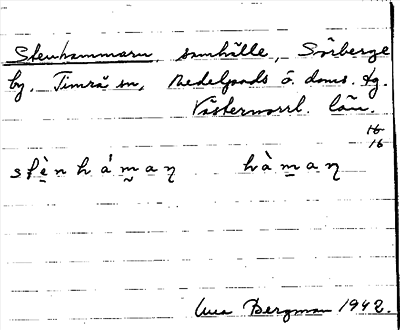 Stenhammarn, samhälle, Sörberge
by. Timrå sn, Medelpads ö. doms. tg.
Västernorrl. län.
16
16
stènhám̬aŋ hàm̠aŋ
Bergman 1942.